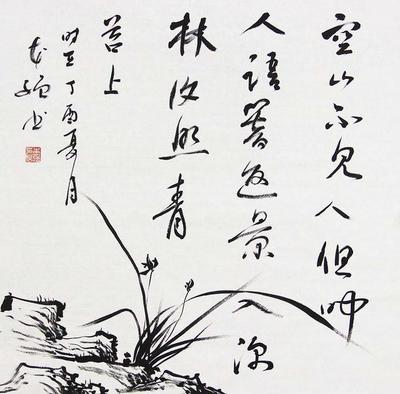 空山不見人但聞
人語響返景入深
林復照青
苔上
时在丁酉夏月
书